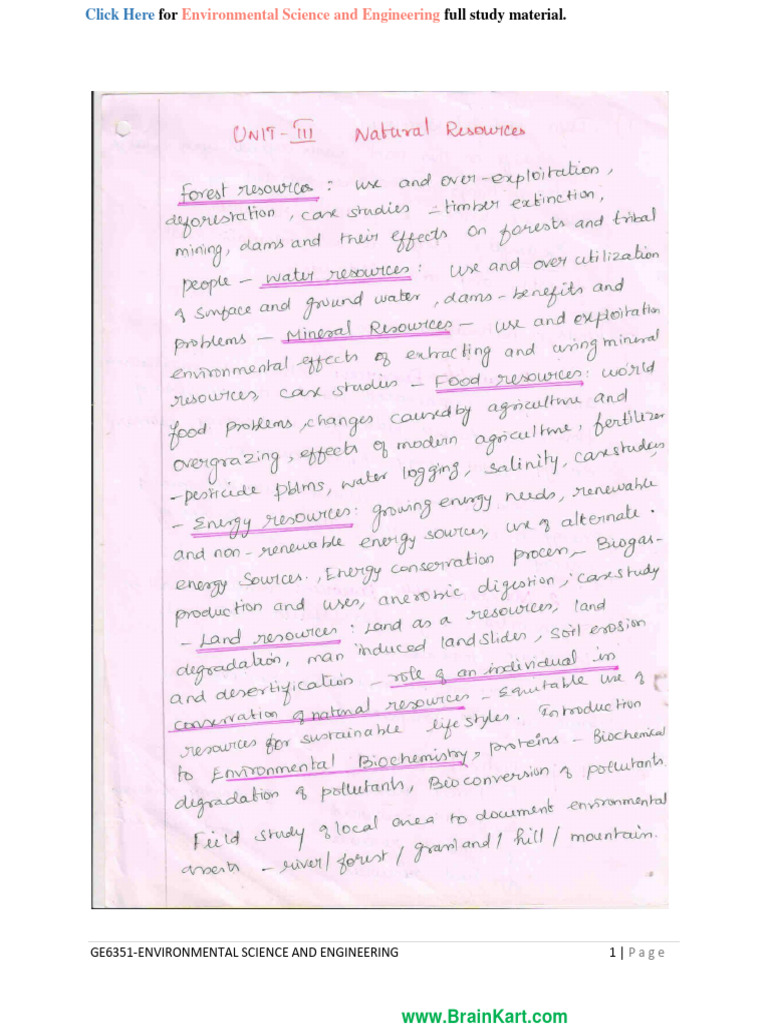 Click Here for Environmental Science and Engineering full study material.
UNIT-III Natural Resources
Forest resources : use and over-exploitation,
deforestation, case studies = timber extinction,
mining, dams and their effects on forests and tribal
people - water resources : use and over utilization
of surface and ground water, dams - benefits and
problems - Mineral Resources - use and exploitation
environmental effects of extracting and using mineral
resources, case studies - Food resources : world
food problems, changes caused by agriculture and
overgrazing, effects of modern agriculture, fertilizer
-pesticide pblms, water logging, salinity, case studies
- Energy resources : growing energy needs, renewable
and non-renewable energy sources, use of alternate.
energy sources., Energy conservation process - Biogas-
production and uses, anerobic digestion, case study
- Land resources : Land as a resources, land
degradation, man induced landslides, soil erosion
and desertification - role of an individual in
conservation of natural resources - Equitable use of
resources for sustainable lifestyles. Introduction
to Environmental Biochemistry, proteins - Biochemical
degradation of pollutants, Bioconversion of pollutants.
Field study of local area to document environmental
assests - river / forest / grassland / hill / mountain.
GE6351-ENVIRONMENTAL SCIENCE AND ENGINEERING 1 | Page
www.BrainKart.com